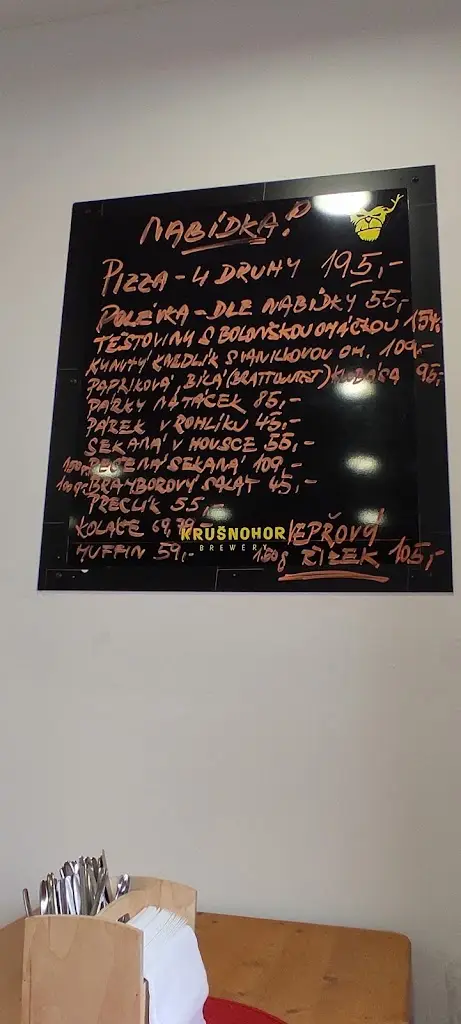 NABÍDKA:
PIZZA - 4 DRUHY 195,-
POLÉVKA - DLE NABÍDKY 55,-
TĚSTOVINY S BOLOŇSKOU OMÁČKOU 154,-
KYNUTÝ KNEDLÍK S VANILKOVOU OM. 109,-
PAPRIKOVÁ, BÍLÁ (BRATTWURST) KLOBÁSA 95,-
PÁRKY NA TÁCEK 85,-
PÁREK V ROHLÍKU 45,-
SEKANÁ V HOUSCE 55,-
PEČENÁ SEKANÁ 109,-
BRAMBOROVÝ SALÁT 45,-
PRECLÍK 55,-
KOLÁČE 69,79,-
MUFFIN 59,-
KRUŠNOHOR
BREWERY
VEPŘOVÝ
150g ŘÍZEK 105,-